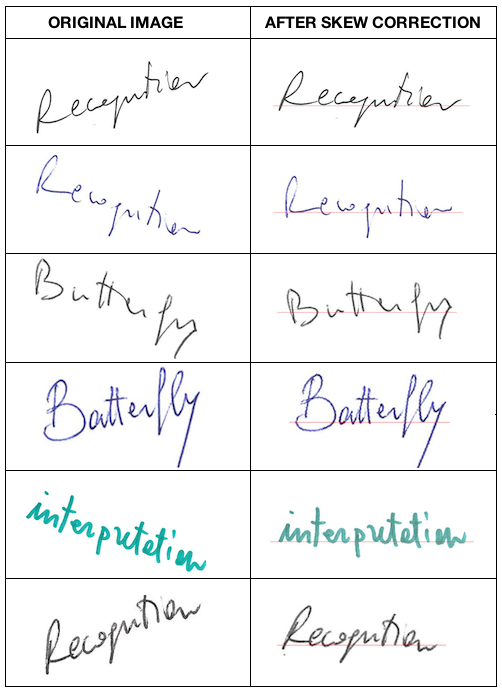 ORIGINAL IMAGE AFTER SKEW CORRECTION
Recognition Recognition
Recognition Recognition
Butterfly Butterfly
Batterfly Batterfly
interpretation interpretation
Recognition Recognition